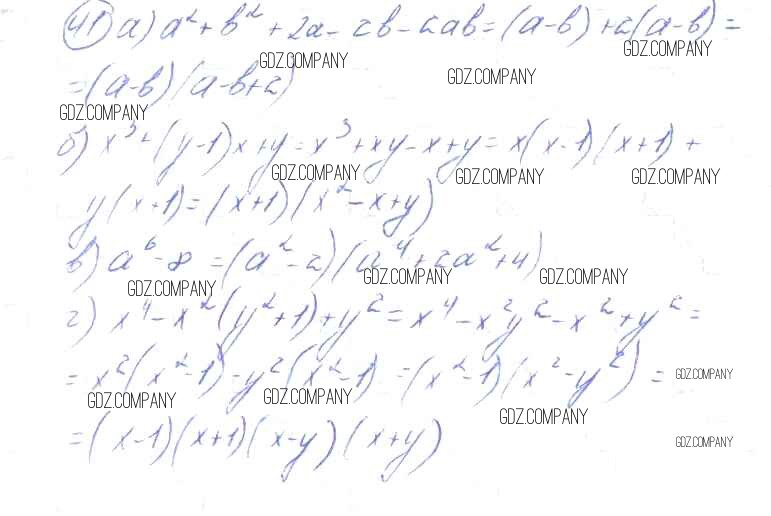 41) а) a² + b² + 2a - 2b - 2ab = (a-b) + 2(a-b) =
GDZ.COMPANY
GDZ.COMPANY
GDZ.COMPANY
= (a-b)(a-b+2)
GDZ.COMPANY
б) x³ + (y-1)x + y = x³ + xy - x + y = x(x-1)(x+1) +
GDZ.COMPANY
GDZ.COMPANY
GDZ.COMPANY
y(x+1) = (x+1)(x² - x + y)
в) a⁶ - 8 = (a² - 2)(a⁴ + 2a² + 4)
GDZ.COMPANY
GDZ.COMPANY
GDZ.COMPANY
г) x⁴ - x²(y² + 1) + y² = x⁴ - x²y² - x² + y² =
= x²(x² - 1) - y²(x² - 1) = (x² - 1)(x² - y²) =
GDZ.COMPANY
GDZ.COMPANY
GDZ.COMPANY
GDZ.COMPANY
= (x-1)(x+1)(x-y)(x+y)
GDZ.COMPANY